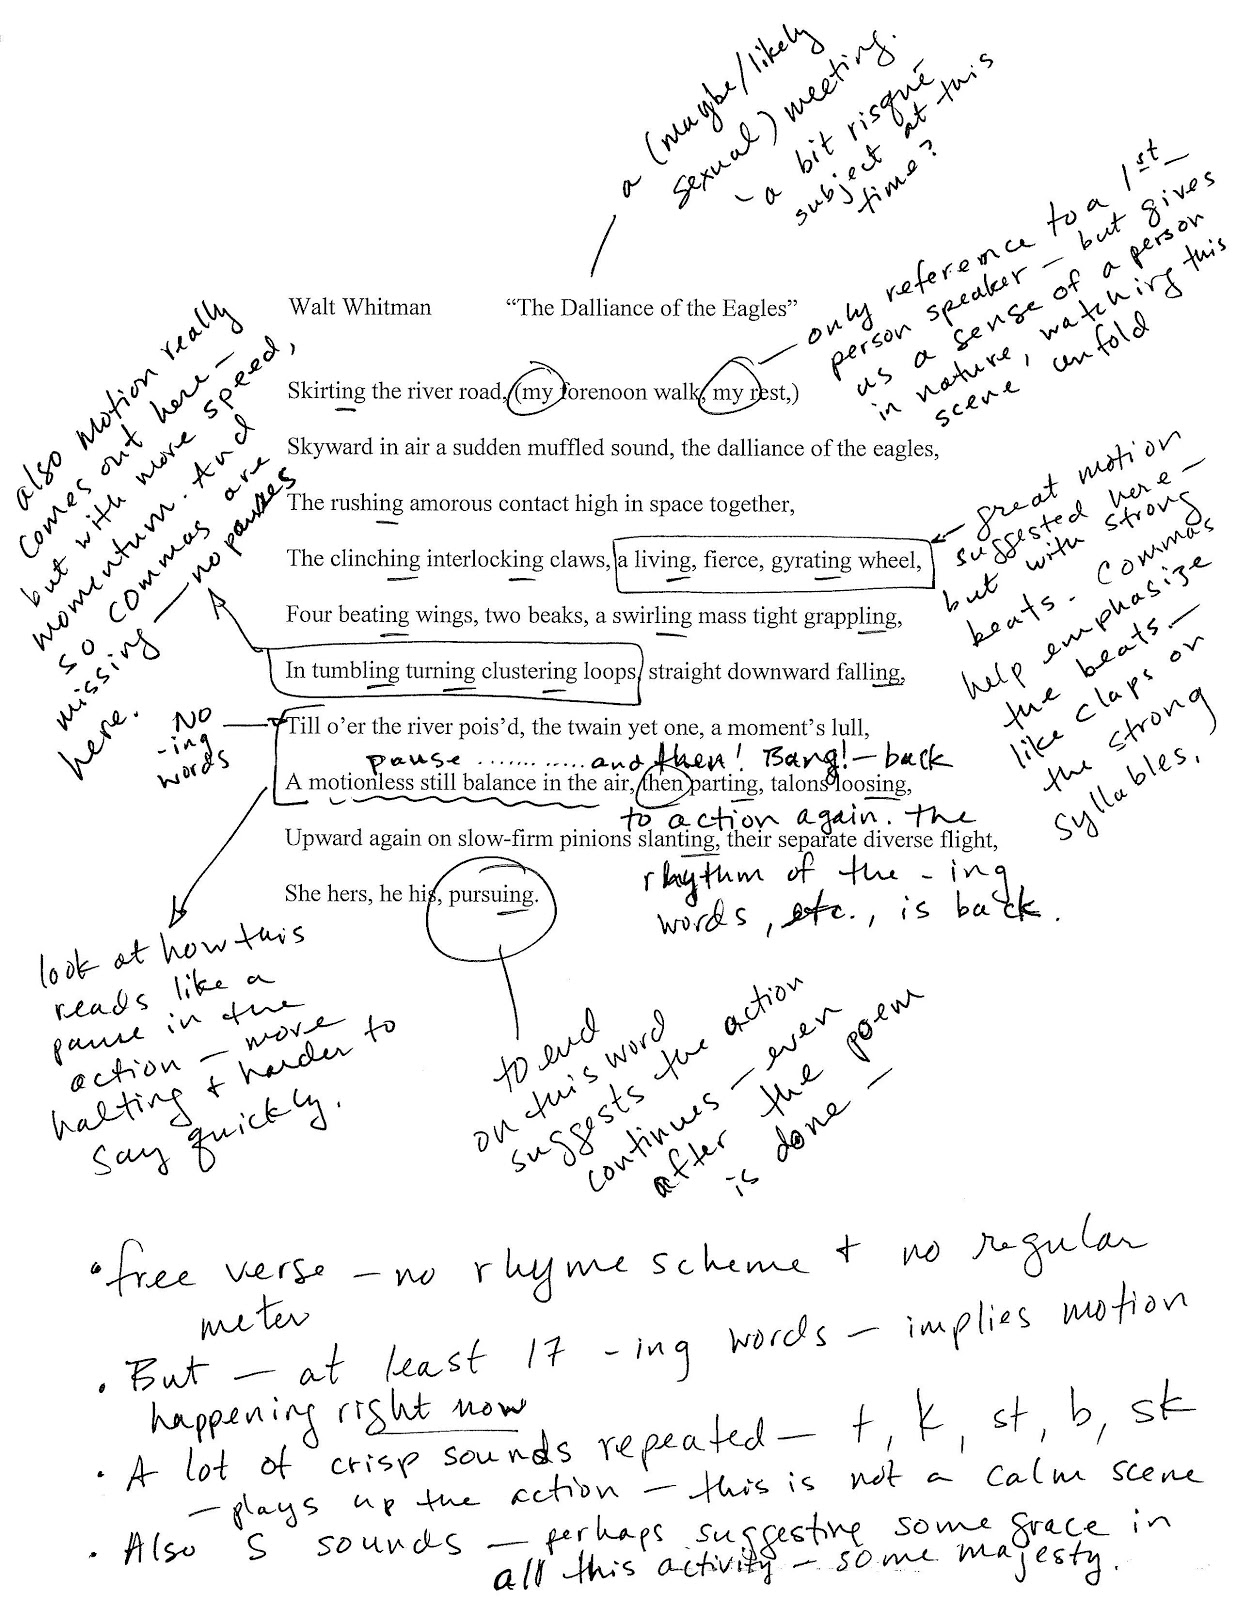 a (maybe/likely
sexual) meeting.
- a bit risqué
subject at this
time?
only reference to a 1st
person speaker — but gives
us a sense of a person
in nature, watching this
scene unfold
Walt Whitman "The Dalliance of the Eagles"
Skirting the river road, (my forenoon walk, my rest,)
Skyward in air a sudden muffled sound, the dalliance of the eagles,
The rushing amorous contact high in space together,
The clinching interlocking claws, a living, fierce, gyrating wheel,
Four beating wings, two beaks, a swirling mass tight grappling,
In tumbling turning clustering loops, straight downward falling,
Till o'er the river pois'd, the twain yet one, a moment's lull,
pause ............ and then! Bang! — back
A motionless still balance in the air, then parting, talons loosing,
to action again. The
Upward again on slow-firm pinions slanting, their separate diverse flight,
rhythm of the -ing
She hers, he his, pursuing.
words, etc., is back.
also motion really
comes out here —
but with more speed,
momentum. And
so commas are
missing — no pauses
here.
great motion
suggested here —
but with strong
beats. Commas
help emphasize
the beats —
like claps on
the strong
syllables.
No
-ing
words
look at how this
reads like a
pause in the
action — more
halting + harder to
say quickly.
to end
on this word
suggests the action
continues — even
after the poem
is done —
• free verse — no rhyme scheme + no regular
meter
• But — at least 17 -ing words — implies motion
happening right now
• A lot of crisp sounds repeated — t, k, st, b, sk
— plays up the action — this is not a calm scene
• Also S sounds — perhaps suggesting some grace in
all this activity — some majesty.